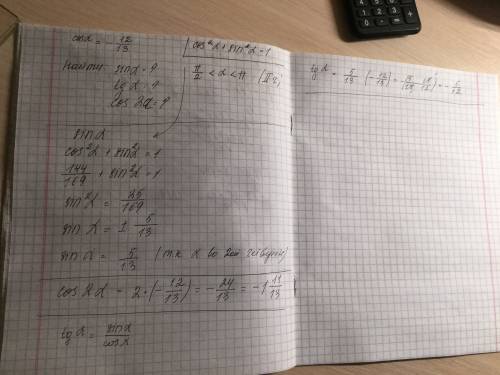 cos α = - 12/13
cos²α + sin²α = 1
Найти: sin α = ?
π/2 < α < π (II ч.)
tg α = ?
cos 2α = ?
sin α
cos²α + sin²α = 1
144/169 + sin²α = 1
sin²α = 25/169
sin α = ± 5/13
sin α = 5/13 (т.к. α во 2ой четверти)
cos 2α = 2·(-12/13) = -24/13 = -1 11/13
tg α = sin α/cos α
tg α = 5/13 : (-12/13) = -(5/13 · 13/12) = -5/12